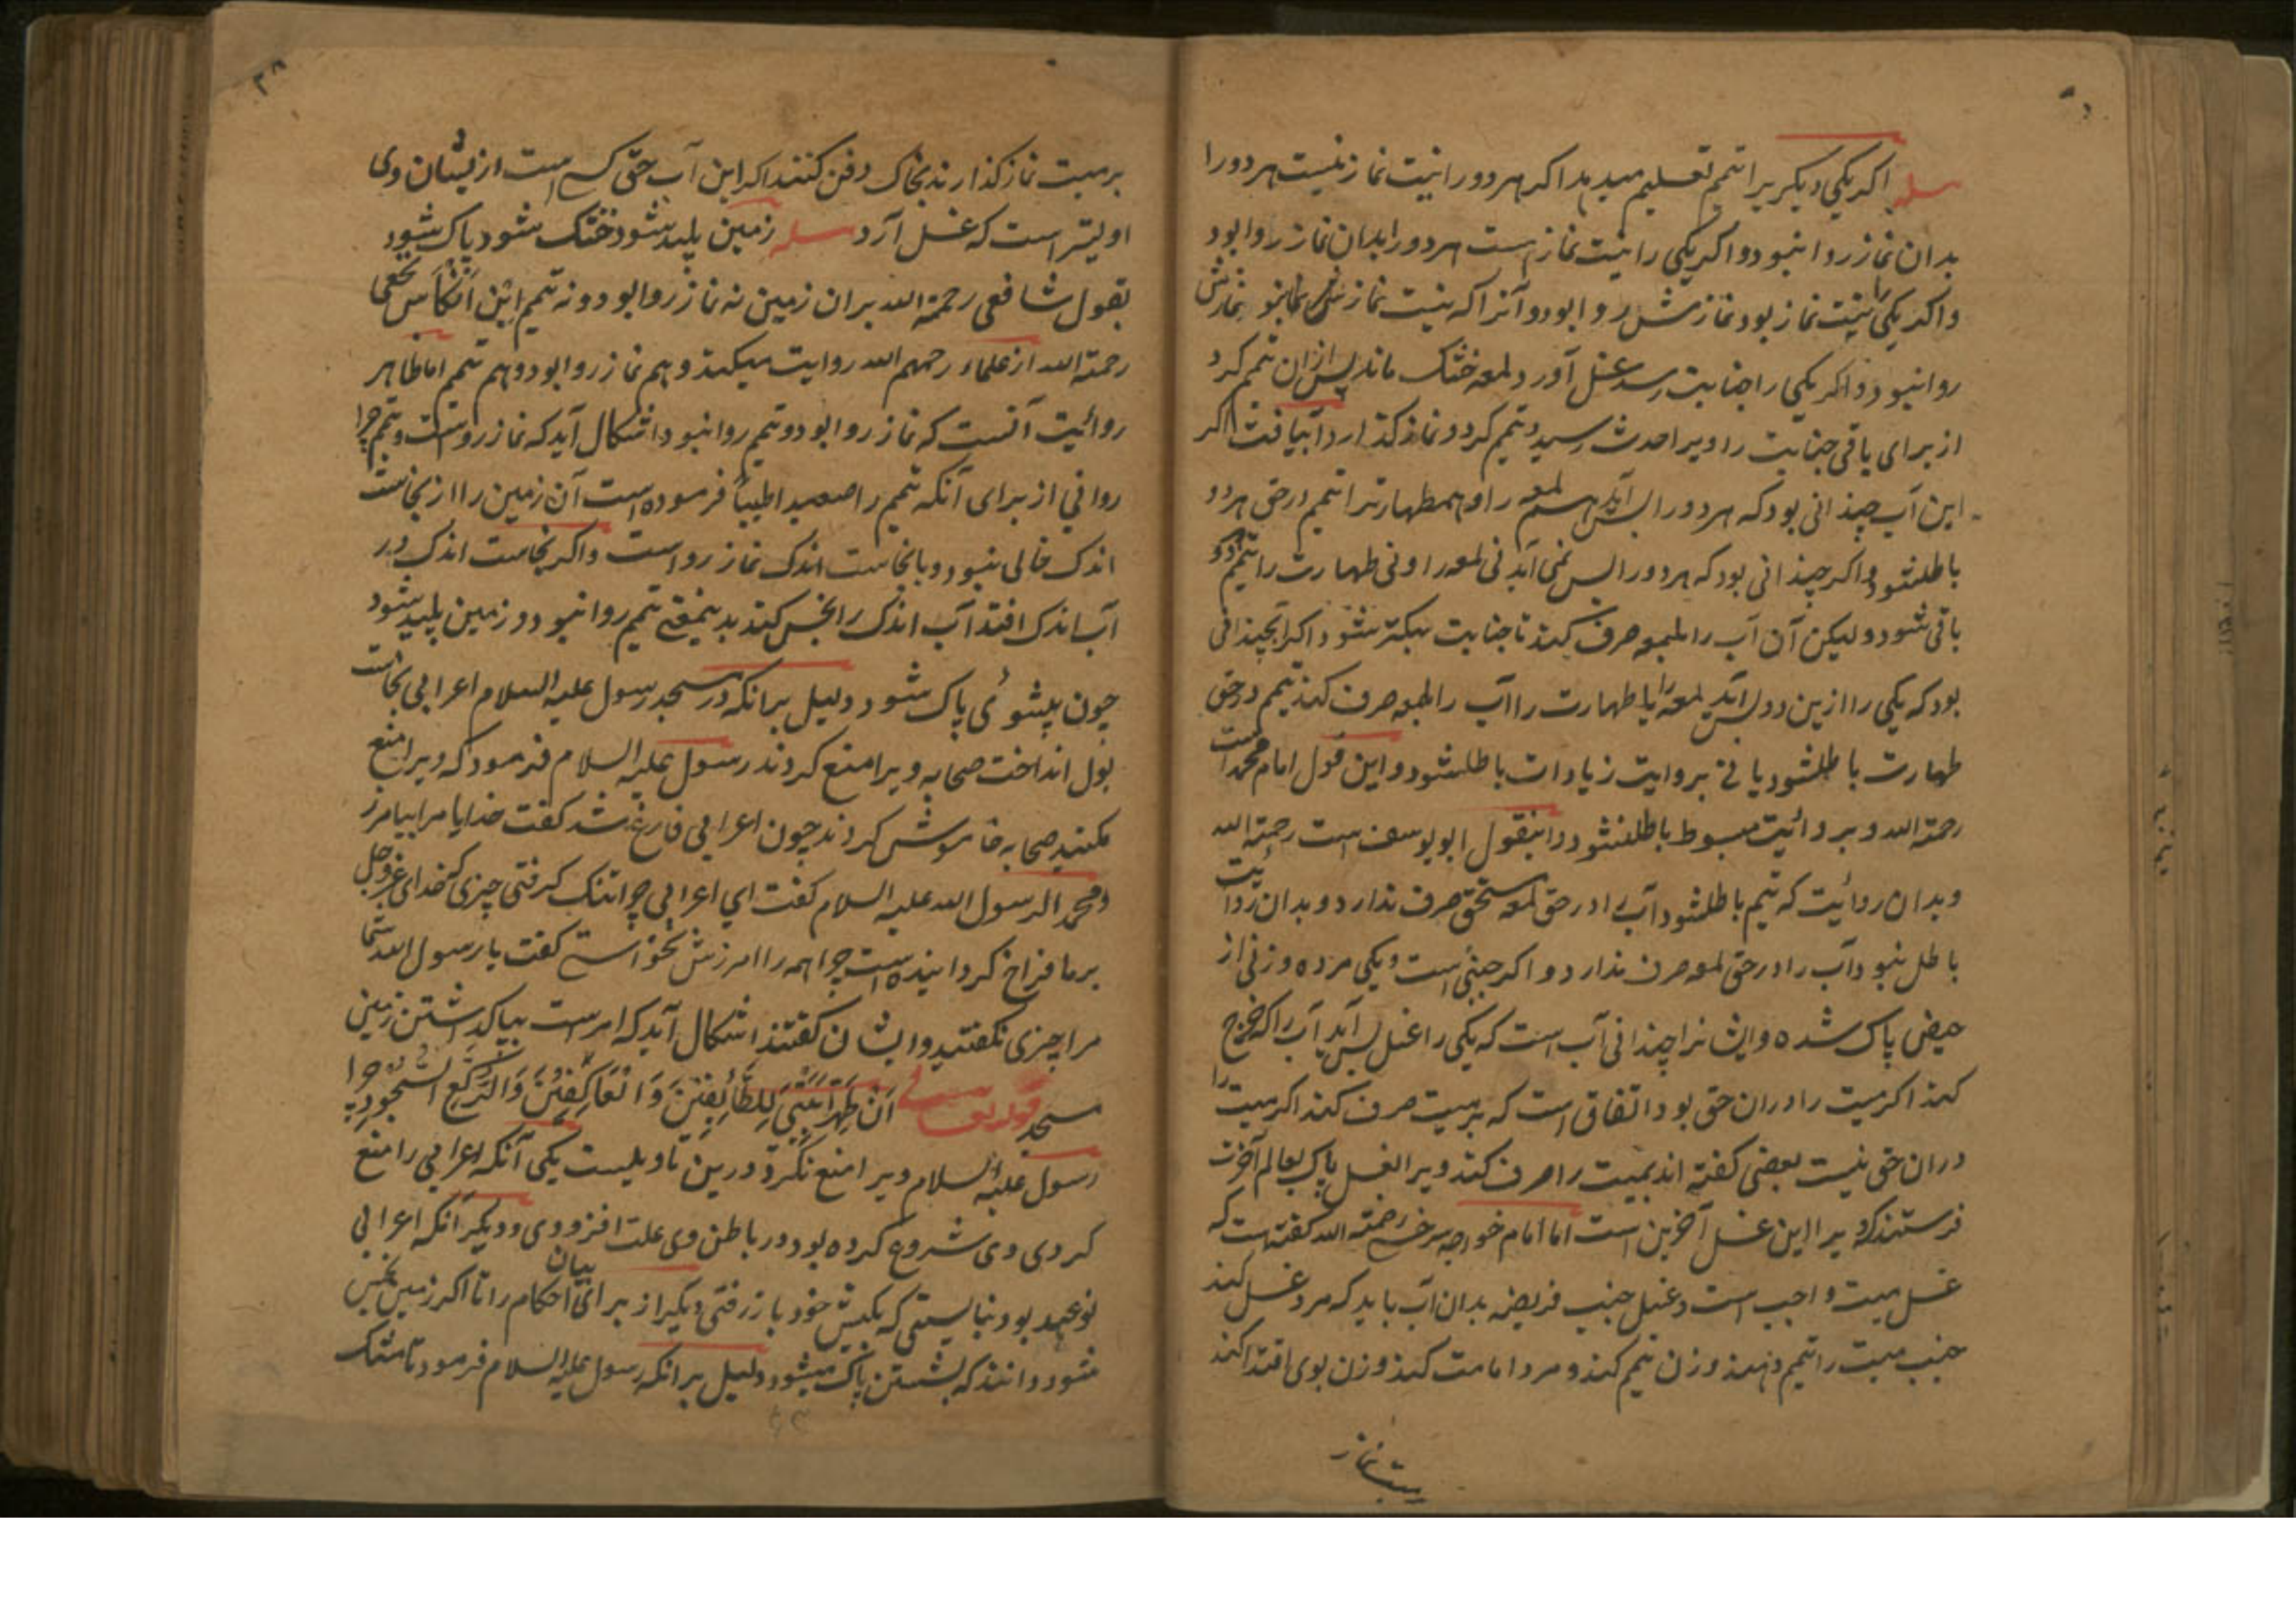 مسله اکر یکی دیکریرا تیمم تعلیم میدهد اکر هر دو را نیت نماز نیست هر دو را
بدان نماز روا نبود و اکر یکی را نیت نماز است هر دو را بدان نماز روا بود
و اکر یکی را نیت نماز بود نمازش روا بود و آنرا که نیت نماز نمازش
روا نبود و اکر یکی را جنابت رسد غسل آورد لمعه خشک ماند پس ازان تیمم کرد
از برای باقی جنابت را ویرا حدث رسید و تیمم کرد و نماز کذارد آب یافت اکر
این آب چندانی بود که هر دو را بس آید هم لمعه را و هم طهارترا تیمم در حق هر دو
باطلشود و اکر چندانی بود که هر دو را بس نمی آید نی لمعه را و نی طهارت را تیمم
باقی شود و لیکن آن آب را بلمعه صرف کند تا جنابت سبکتر شود اکر آب چندانی
بود که یکی را ازین دو بس آید لمعه را یا طهارت را آب را بلمعه صرف کند تیمم در حق
طهارت باطلشود یا نی بروایت زیادات باطلشود و این قول امام محمد است
رحمة الله و بروائیت مبسوط باطلنشود و اینقول ابو یوسف است رحمة الله
و بدان روائیت که تیمم باطلشود آب را در حق لمعه مستحق صرف ندارد و بدان روائیت
باطل نبود آب را در حق لمعه صرف ندارد و اکر جنبی است و یکی مرده و زنی از
حیض پاک شده و ایشانرا چندانی آب است که یکی را غسل بس آید آب را که خرج
کند اکر میت را دران حق بود اتفاق است که بر میت صرف کند اکر میت را
دران حق نیست بعضی کفته اند بمیت را صرف کنند ویرا بغسل پاک بعالم آخرت
فرستند که ویرا این غسل آخرین است اما امام خواهر سرخسی رحمة الله کفته است که
غسل میت واجب است و غسل جنب فریضه بدان آب باید که مرد غسل کند
جنب میت را تیمم دهند و زن تیمم کند و مرد امامت کند و زن بوی اقتدا کند
نماز
بر میت نماز کذارند بخاک دفن کنند اکر این آب حق کسی است از یشان وی
اولیتر است که غسل آرد مسله زمین پلید شود خشک شود پاک شود
بقول شافعی رحمة الله بران زمین نه نماز روا بود و نه تیمم ابن انکاس نخعی
رحمة الله از علماء رحمهم الله روایت میکند و هم نماز روا بود و هم تیمم اما ظاهر
روائیت آنست که نماز روا بود و تیمم روا نبود اشکال آید که نماز رواست و تیمم چرا
روا نی از برای آنکه تیمم را صعیدا طیبا فرموده است آن زمین را از نجاست
اندک خالی نبود و با نجاست اندک نماز روا است و اکر نجاست اندک در
آب اندک افتد آب اندک را نجس کند بدینمعنی تیمم روا نبود و زمین پلید شود
چون بشوئی پاک شود دلیل برانکه در مسجد رسول علیه السلام اعرابی نجاست
بول انداخت صحابه ویرا منع کردند رسول علیه السلام فرمود که ویرا منع
مکنید صحابه خاموش کردند چون اعرابی فارغ شد کفت خدایا مرا بیامرز
و محمد الرسول الله علیه السلام کفت ای اعرابی چرا تنک کرفتی چیزی که خدای عز و جل
بر ما فراخ کردانیده است چرا همه را امرزش نخواستی کفت یا رسول الله شما
مرا چیزی نکفتید و ایشان کفتند اشکال آید که امر است بپاک داشتن زمین
مسجد قوله تعالی اَن طَهِّرَا بَیْتِیَ لِلطَّائِفِیْنَ وَ الْعَاکِفِیْنَ وَ الرُّکَّعِ السُّجُودِ چرا
رسول علیه السلام ویرا منع نکرد درین تاویلیست یکی آنکه اعرابی را منع
کردی وی شروع کرده بود در باطن وی علت افزودی و دیکر آنکه اعرابی
نو عهد بود نبایستی که بکیش خود باز رفتی دیکر از برای بیان احکام را تا اکر زمین نجس
شود دانند که بشستن پاک میشود دلیل برانکه رسول علیه السلام فرمود تا مشک